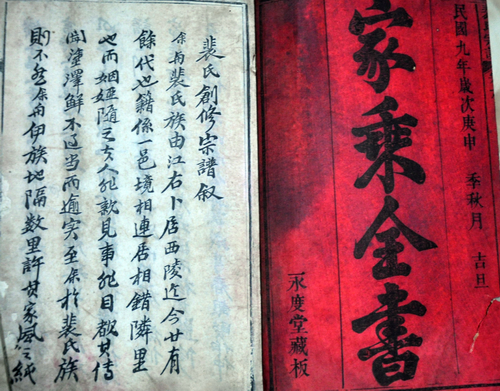 民國九年歲次庚申 季秋月 吉旦
家乘全書
永度堂藏板
裴氏創修宗譜叙
余與裴氏族由江右卜居西陵迄今廿有
餘代也籍係一邑境相連居相錯隣里
也而姻婭隨之夫人非見事非目覩其傳
聞塗澤鮮不过当而逾实至余於裴氏族
則不然余與伊族地隔数里許其家風之純